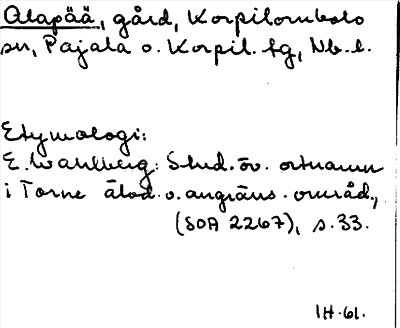 Alapää, gård, Korpilombolo
sn, Pajala o. Korpil. tg, Nb. l.
Etymologi:
E. Wahlberg: Stud. öv. ortnamn
i Torne älvd. o. angräns. områd.,
(SOA 2267), s. 33.
IH. 61.